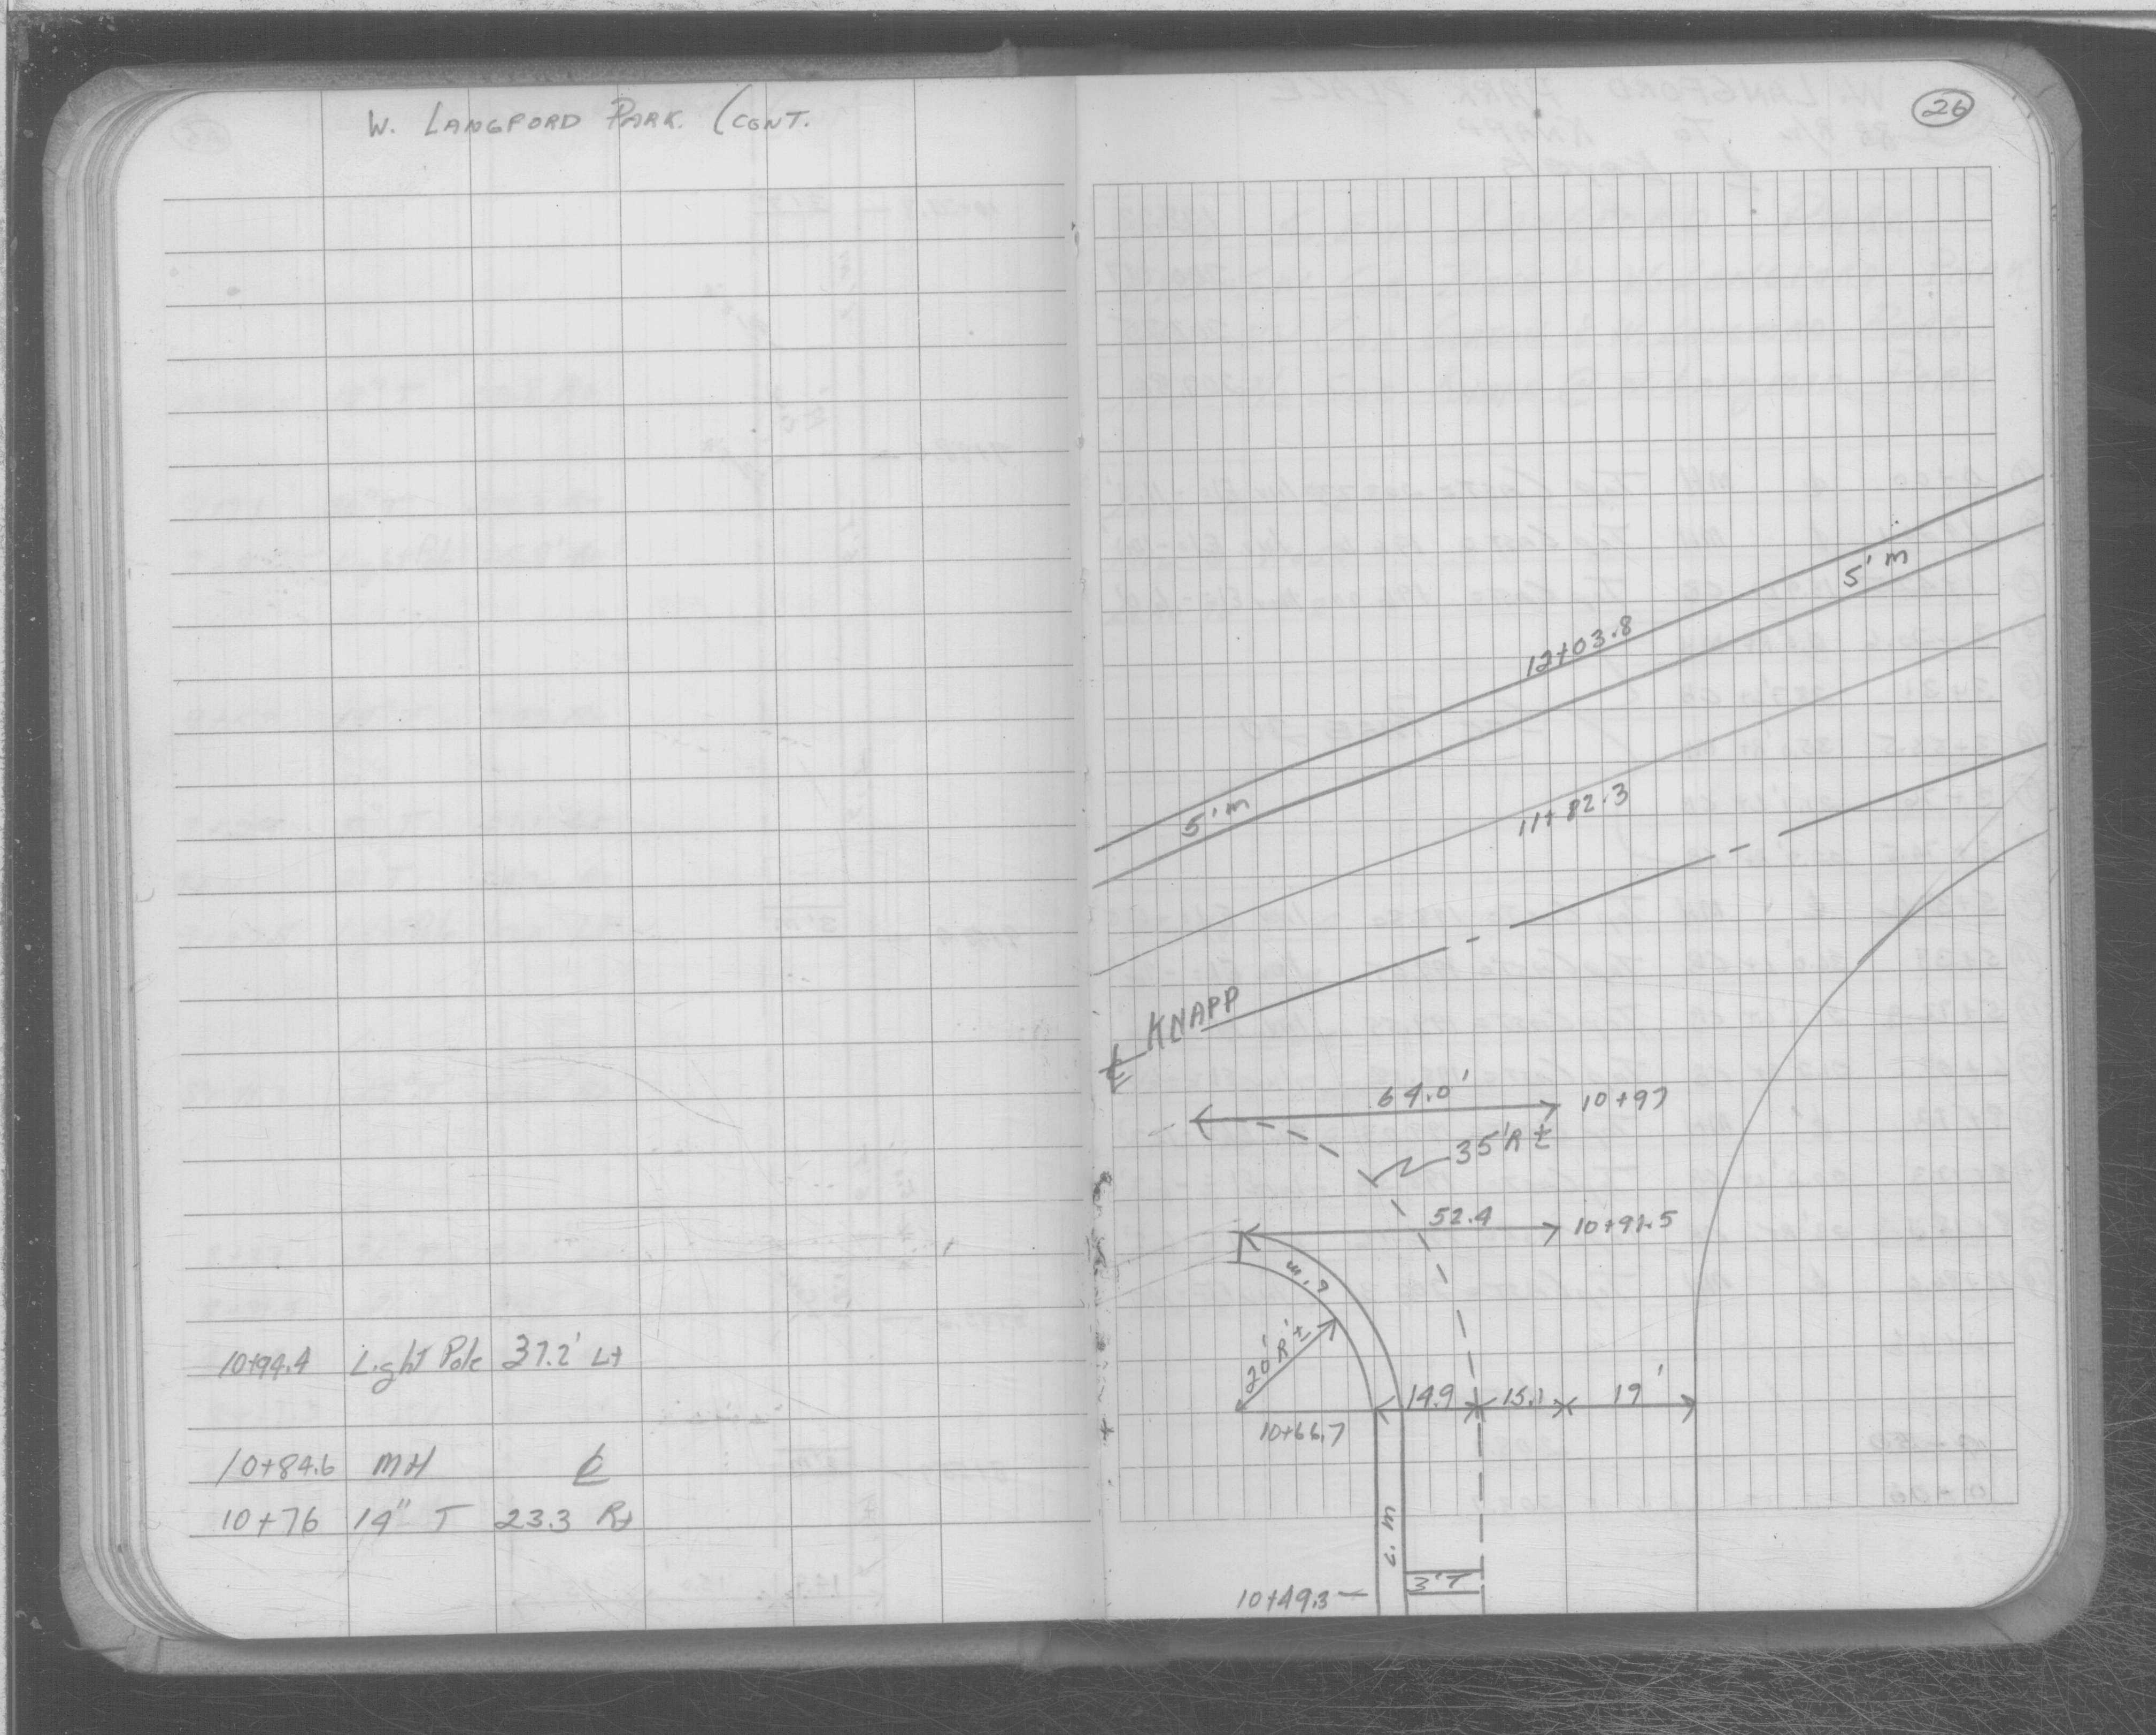 W. LANGFORD PARK. (CONT.
10+94.4 Light Pole 37.2' Lt
10+84.6 MH ℄
10+76 14" T 23.3 Rt
26
5' m
12+03.8
5' m
11+82.3
℄ KNAPP
64.0' 10+97
35'R ±
52.4 10+91.5
20'R'±
14.9 15.1 19'
10+66.7
3'T
10+49.3